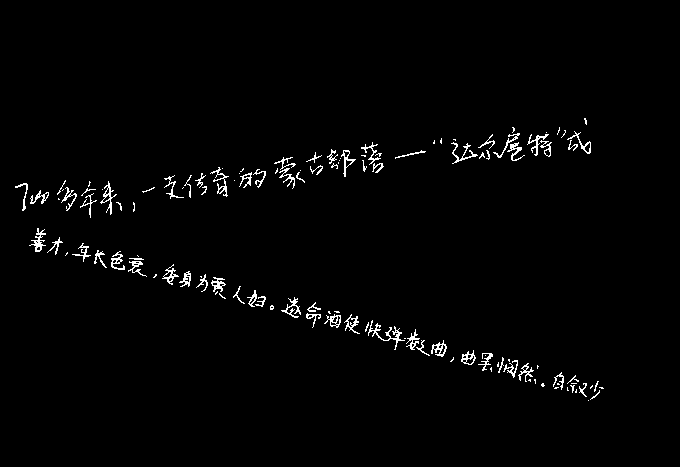 700多年来，一支传奇的蒙古部落一“达尔扈特”成
善才，年长色衰，委身为贾人妇。遂命酒使快弹数曲，曲罢悯然。自叙少